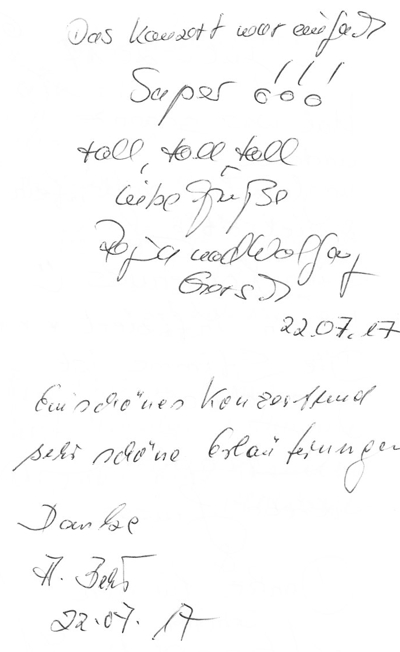 Das Konzert war einfach
Super !!!
toll, toll toll
Liebe Grüße
und Wolfgang
22.07.17
Ein schönes Konzert und
sehr schöne Erläuterungen
Danke
H.
22.07.17